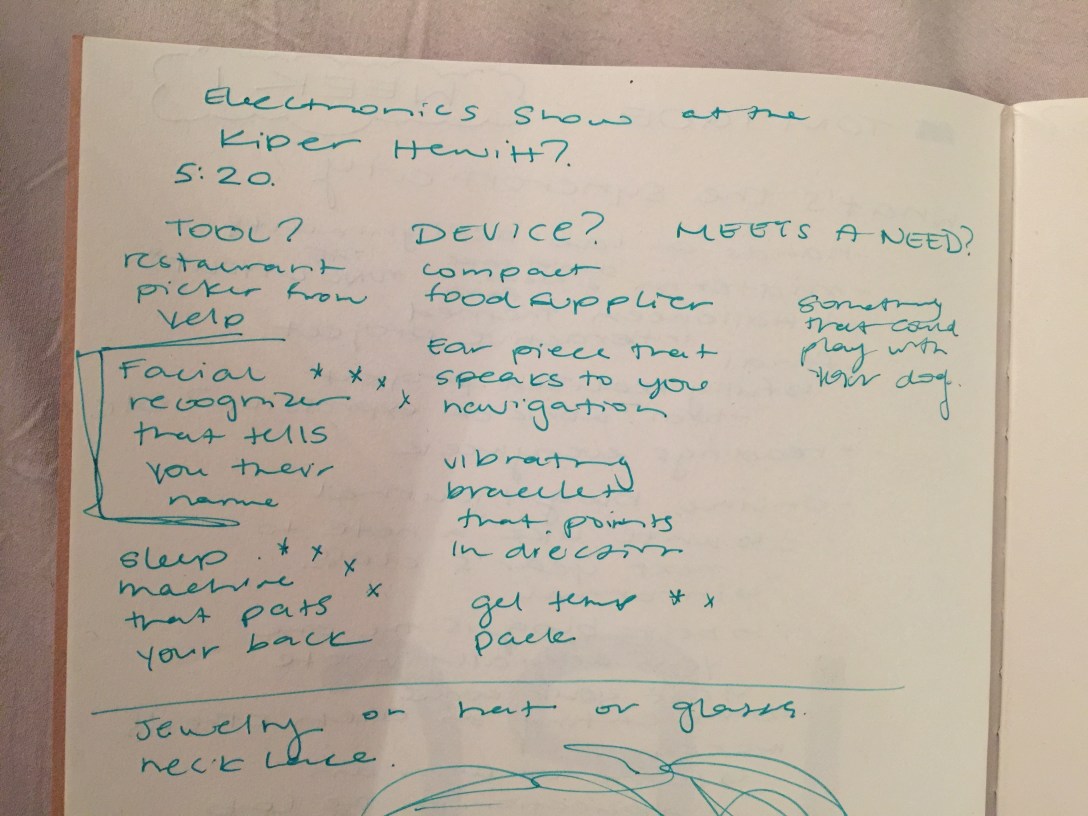 Electronics Show at the
Kiper Hewitt?
5:20.
TOOL?
restaurant
picker from
Yelp
Facial * * x x
recognizer
that tells
you their
name
sleep * x x x
machine
that pats
your back
DEVICE?
compact
food supplier
Ear piece that
speaks to you
navigation
vibrating
bracelet
that points
in direction
gel temp * x
pack
MEETS A NEED?
something
that could
play with
their dog.
Jewelry or hat or glasses.
necklace.